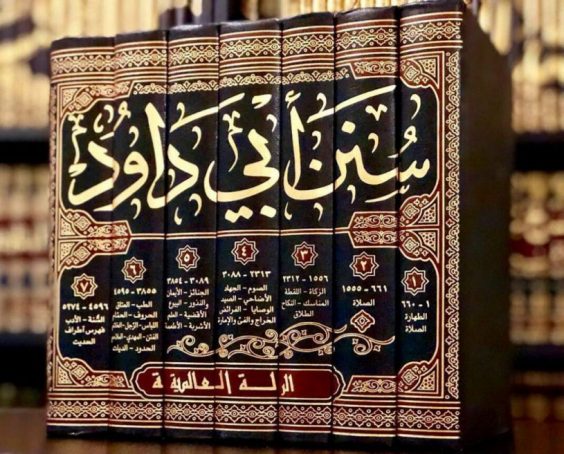 سُنَن أَبِي دَاوُد
١
١ - ٦٦٠
الطهارة
الصلاة
٢
٦٦١ - ١٥٥٥
الصلاة
٣
١٥٥٦ - ٢٣١٢
الزكاة - اللقطة
المناسك - النكاح
الطلاق
٤
٢٣١٣ - ٣٠٨٨
الصوم - الجهاد
الأضاحي - الصيد
الوصايا - الفرائض
الخراج والفيء والإمارة
٥
٣٠٨٩ - ٣٨٥٤
الجنائز - الأيمان
والنذور - البيوع
الأقضية - العلم
الأشربة - الأطعمة
٦
٣٨٥٥ - ٤٥٩٥
الطب - العتاق
الحروف - الحمّام
اللباس - الترجل - الخاتم
الفتن - المهدي - الملاحم
الحدود - الديات
٧
٤٥٩٦ - ٥٢٧٤
السُّنة - الأدب
فهرس أطراف
الحديث
الرسالة العالمية